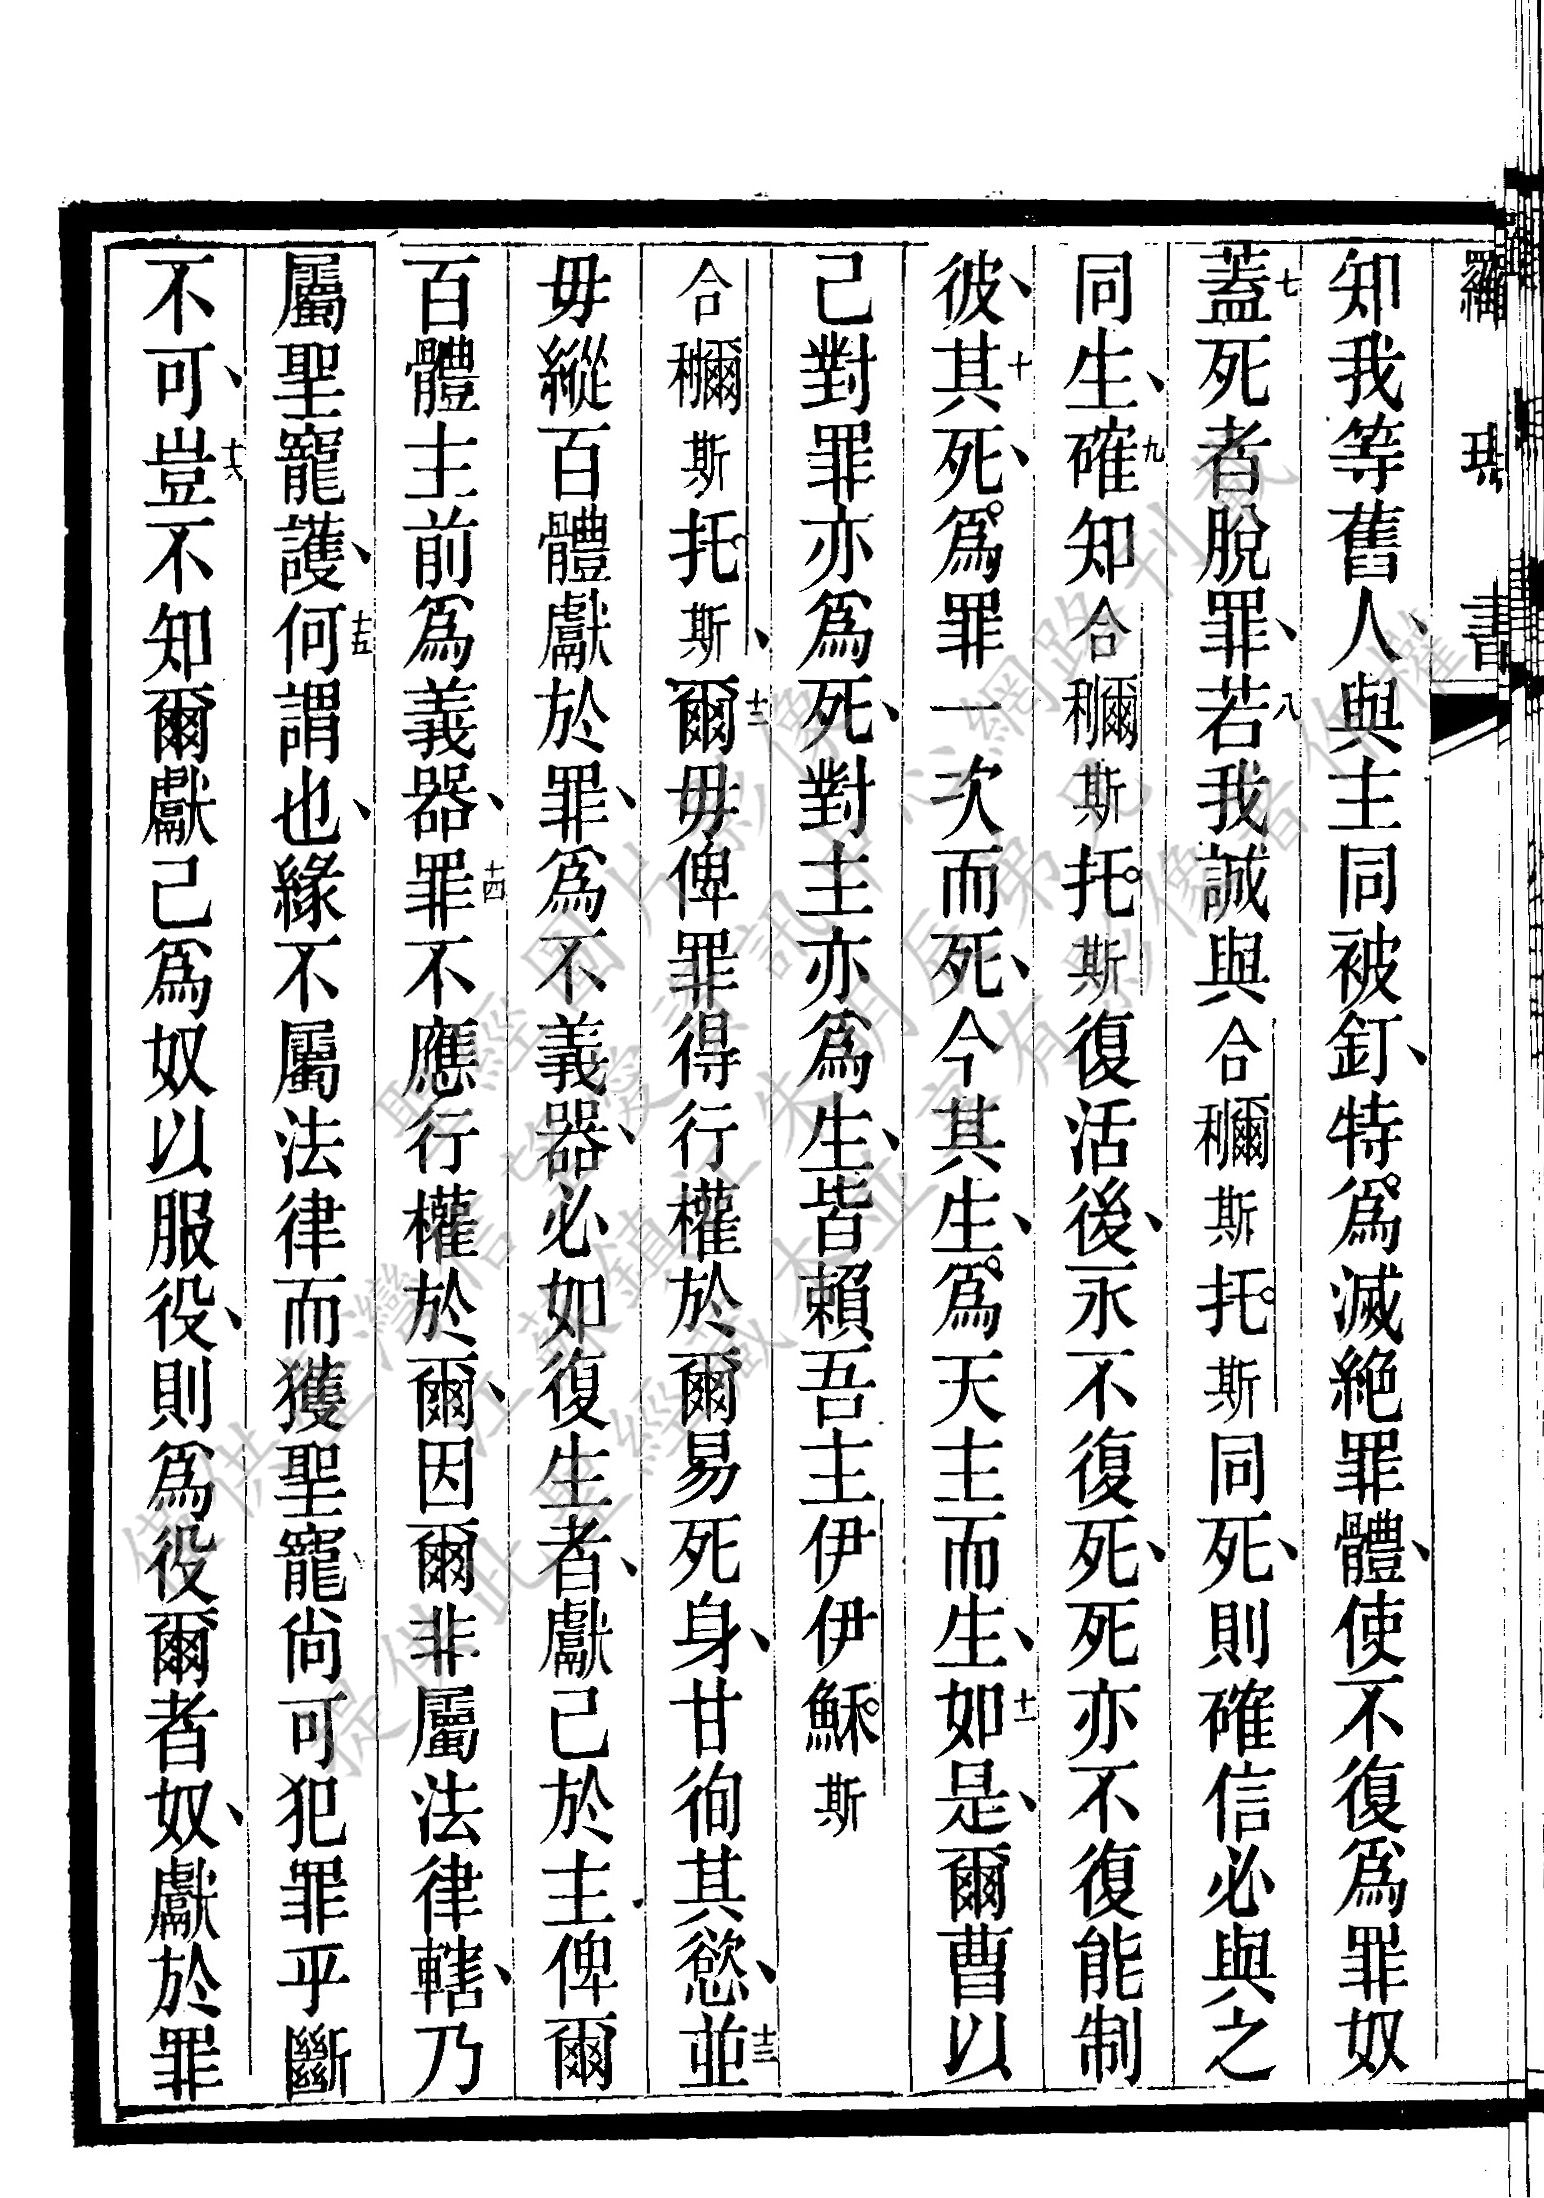 羅 書
知我等舊人、與主同被釘、特爲滅絕罪體、使不復爲罪奴
七蓋死者脫罪、八若我誠與合穪斯托斯同死、則確信必與之
同生、九確知合穪斯托斯復活後、永不復死、死亦不復能制
彼、十其死、爲罪一次而死、今其生、爲天主而生、十一如是、爾曹以
己對罪亦爲死、對主亦爲生、皆賴吾主伊伊穌斯
合穪斯托斯、十二爾毋俾罪得行權於爾易死身、甘徇其慾、十三並
毋縱百體獻於罪、爲不義器、必如復生者、獻己於主、俾爾
百體主前爲義器、十四罪不應行權於爾、因爾非屬法律轄、乃
屬聖寵護、十五何謂也、緣不屬法律而獲聖寵、尙可犯罪乎斷
不可、十六豈不知爾獻己爲奴以服役、則爲役爾者奴、獻於罪